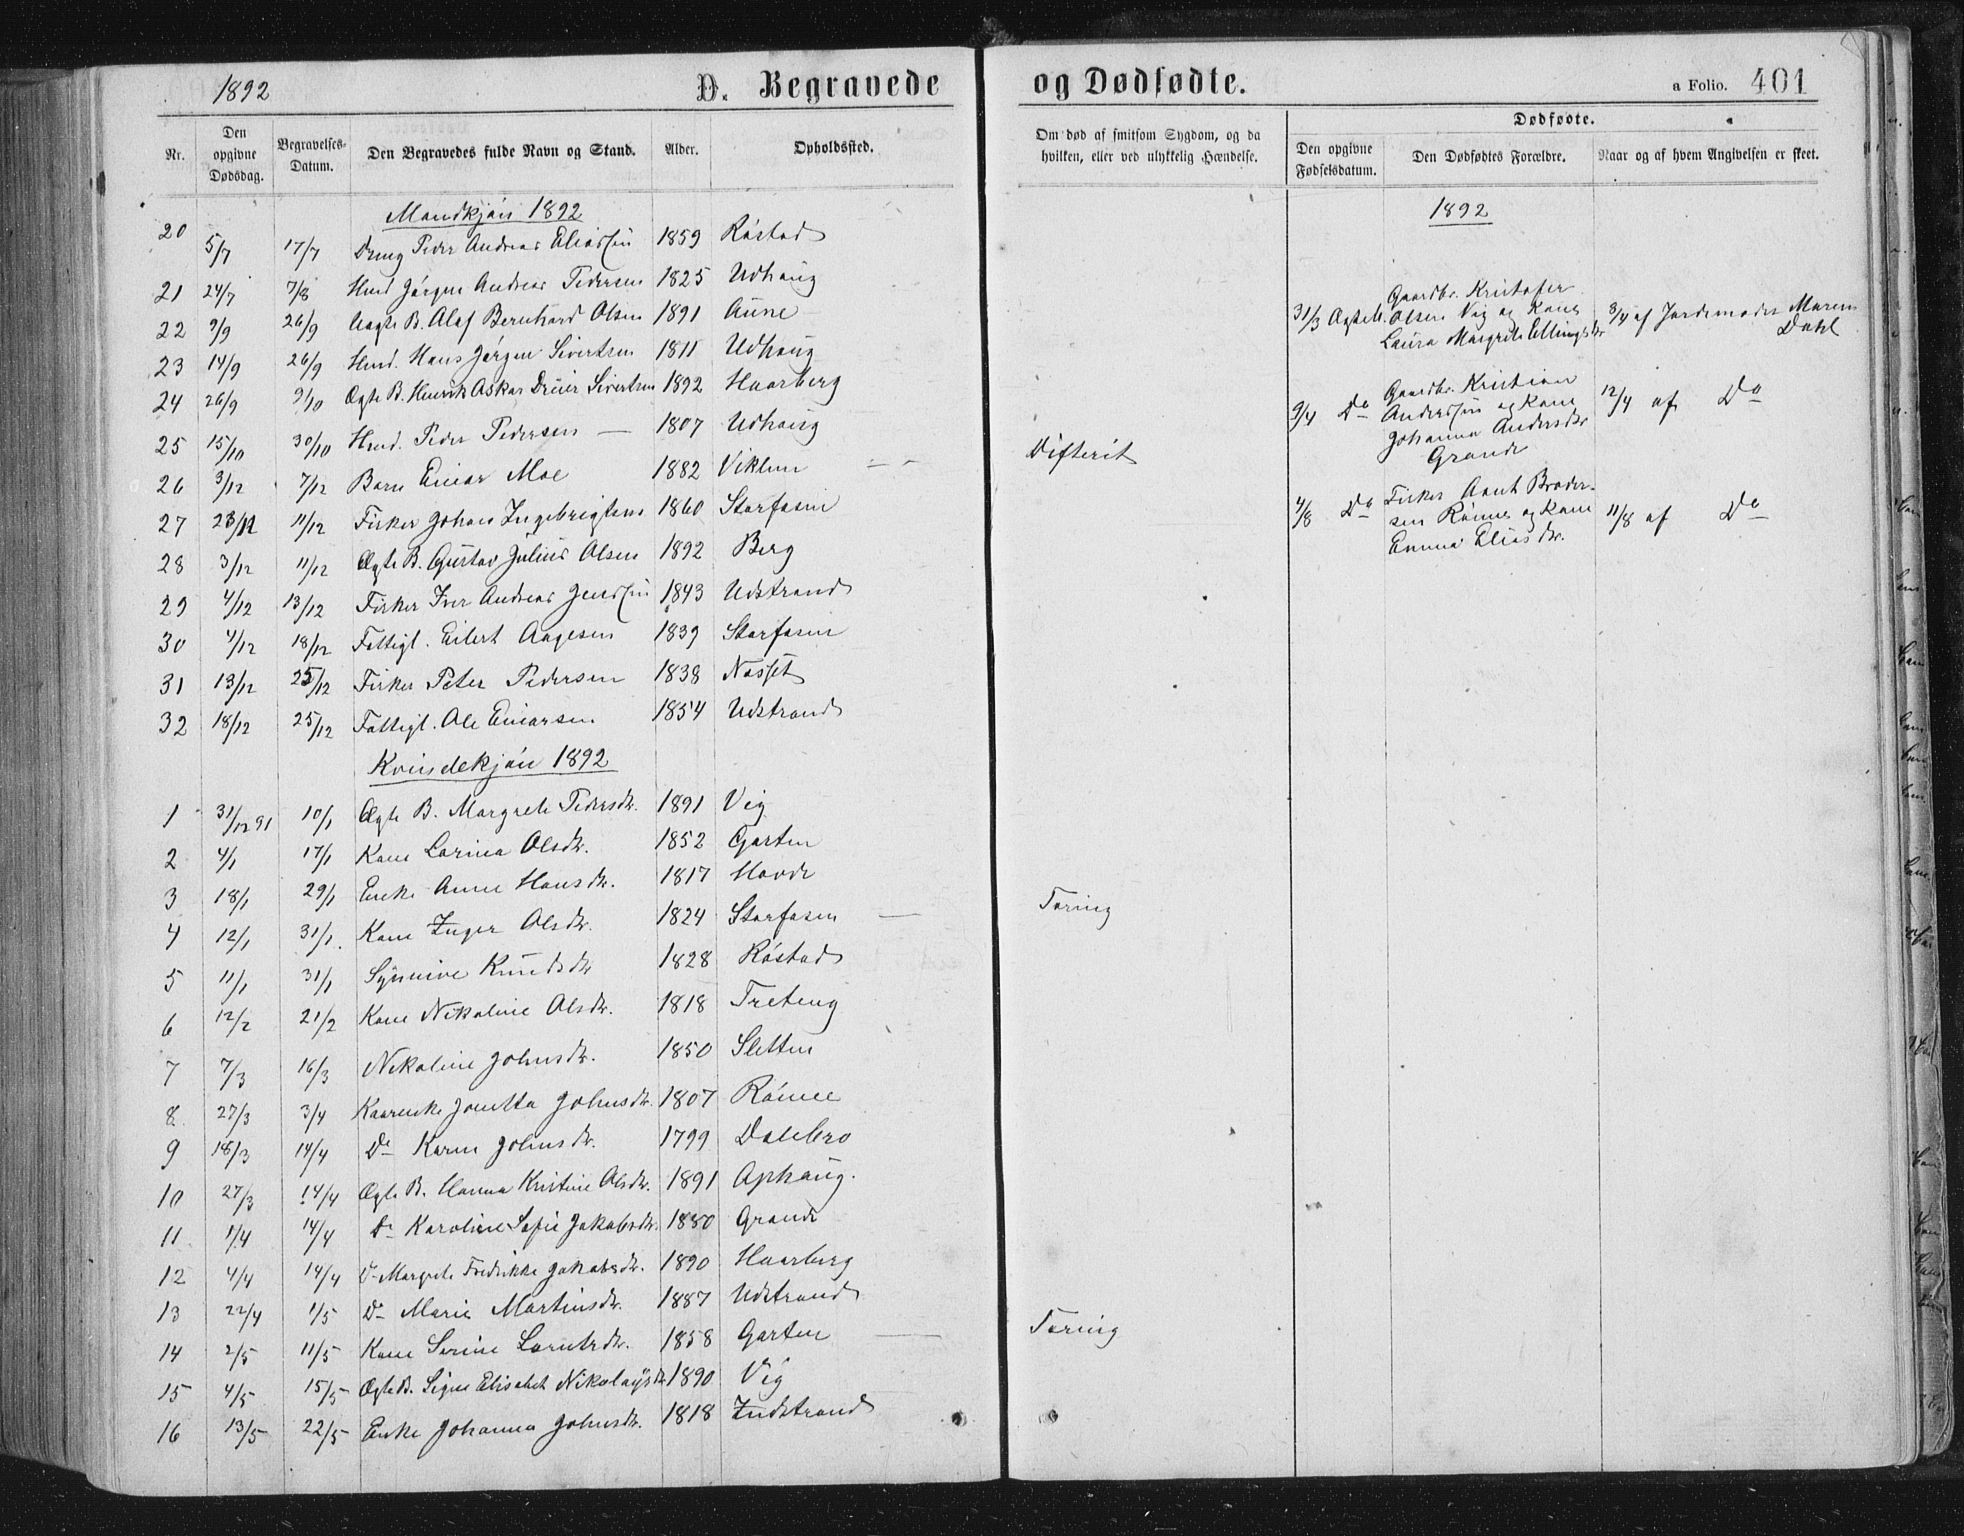 1892 D. Begravede og Dødfødte. a Folio. 401
Nr. Den opgivne Dødsdag. Begravelses-Datum. Den Begravedes fulde Navn og Stand. Alder. Opholdssted. Om død af smitsom Sygdom, og da hvilken, eller ved ulykkelig Hændelse. Dødfødte. Den opgivne Fødselsdatum. Den Dødfødtes Forældre. Naar og af hvem Angivelsen er skeet.
Mandkjøn 1892
20 5/7 17/7 Dreng Peder Andreas Eliassen 1859 Røstad
21 24/7 7/8 Huusd. Jørgen Andreas Pedersen 1825 Udhaug
22 9/9 26/9 Ægte B. Olaf Bernhard Olsen 1891 Aune
23 14/9 26/9 Huusd. Hans Jørgen Sivertsen 1811 Udhaug
24 26/9 9/10 Ægte B. Henrik Oskar Sivertsen 1892 Haarberg
25 15/10 30/10 Huusd. Peder Pedersen 1807 Udhaug
26 3/12 7/12 Barn Einar Moe 1882 Viklem - - Difterit
27 23/11 11/12 Fisker Johan Ingebrigtsen 1860 Storfosen
28 3/12 11/12 Ægte B. Gustav Julius Olsen 1892 Berg
29 4/12 13/12 Fisker Iver Andreas Jenssen 1843 Udstrand
30 4/12 18/12 Fattigl. Eilert Aagesen 1839 Storfosen
31 13/12 25/12 Fisker Peter Pedersen 1838 Næsset
32 18/12 25/12 Fattigl. Ole Einarsen 1854 Udstrand
Kvindekjøn 1892
1 31/12 91 10/1 Ægte B. Margrete Pedersdr. 1891 Vig
2 4/1 17/1 Kone Larina Olsdr. 1852 Garten
3 18/1 29/1 Enke Anne Hansdr. 1817 Hovde
4 12/1 31/1. Kone Inger Olsdr. 1824 Storfosen — Tæring
5 11/1 31/1 Synnive Knudsdr 1828 Røstad
6 12/2 21/2 Kone Nikoline Olsdr. 1818 Treteng
7 7/3 16/3 Nikoline Johnsdr. 1850 Sletten
8. 27/3 3/4 Kaarenke Jonetta Johnsdr. 1807 Rønne
9 18/3 14/4 Do Karen Johnsdr. 1799 Dalebro
10 27/3 14/4 Ægte B. Hanna Kristine Olsdr. 1891 Ophaug.
11. 1/4 14/4 Do Karoline Sofie Jakobsdr. 1880 Grande
12 4/4 14/4 Do Margrete Fredrikke Jakobsdr. 1890 Haarberg
13 22/4 1/5 Do Marie Martinsdr. 1887 Udstrand
14 2/5 11/5 Kone Serine Lorntsdr. 1858 Garten — Tæring
15 4/5 15/5 Ægte B. Signe Elisabet Nikolaysdr 1890 Vig
16 13/5 22/5 Enke Johanna Johnsdr. 1818 Indstrand
1892
31/3 Ægte B. Gaardbr. Kristofer
Olsen Vig og Kone
Laura Margrete Ellingsdr
3/4 af Jordemoder Maren
Dahl
9/4 Do Gaardbr. Kristian
Anderssen og Kone
Johanna Andersdr
Grande
12/4 af Do
4/8 Do Fisker Arnt Broder-
sen Rønne og Kone
Emma Eliasdr.
11/8 af Do